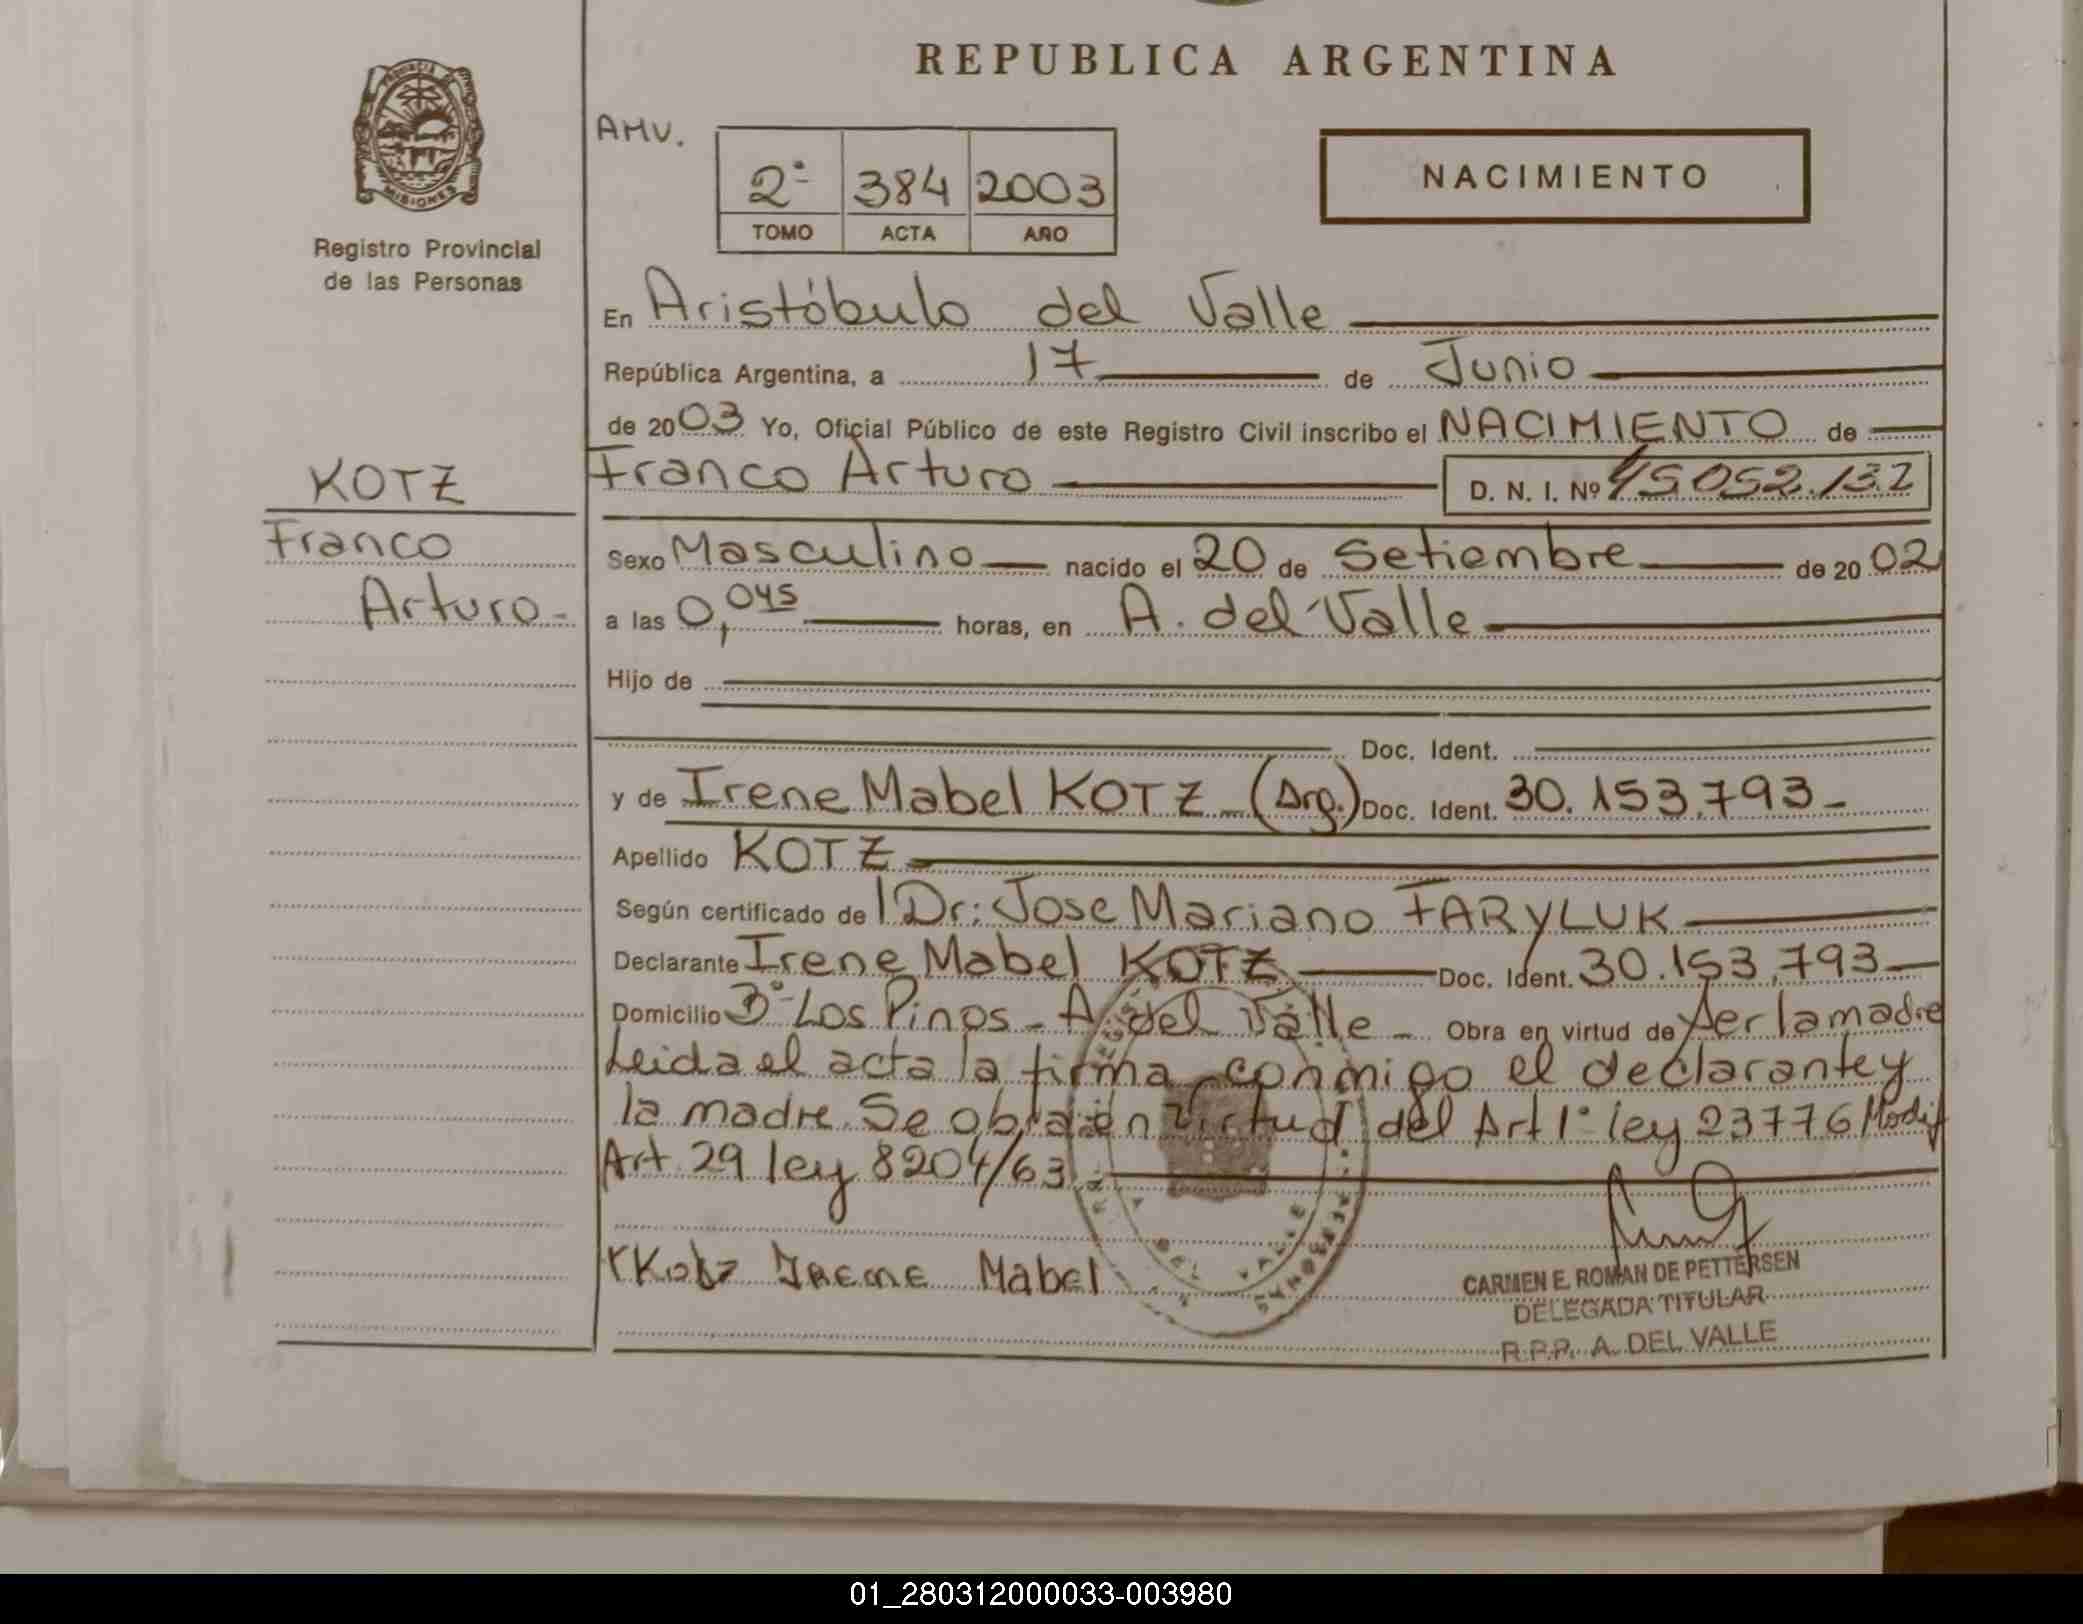 REPUBLICA ARGENTINA
PROVINCIA DE
MISIONES
Registro Provincial
de las Personas
AMV.
2º 384 2003
TOMO ACTA AÑO
NACIMIENTO
En Aristóbulo del Valle
República Argentina, a 17 de Junio
de 2003 Yo, Oficial Público de este Registro Civil inscribo el NACIMIENTO de
KOTZ
Franco
Arturo-
Franco Arturo D. N. I. Nº 45052.132
Sexo Masculino nacido el 20 de Setiembre de 2002
a las 0,045 horas, en A. del Valle
Hijo de
Doc. Ident.
y de Irene Mabel KOTZ (Arg.) Doc. Ident. 30.153.793-
Apellido KOTZ
Según certificado de l Dr: Jose Mariano FARYLUK
Declarante Irene Mabel KOTZ Doc. Ident. 30.153.793
Domicilio Bº Los Pinos - A. del Valle - Obra en virtud de ser la madre
Leida el acta la firma conmigo el declarante y
la madre. Se obra en virtud del Art 1º ley 23776 Modif
Art 29 ley 8204/63
Kotz Irene Mabel
DEL VALLE
CARMEN E. ROMAN DE PETTERSEN
DELEGADA TITULAR
R.P.P. A. DEL VALLE
01_280312000033-003980